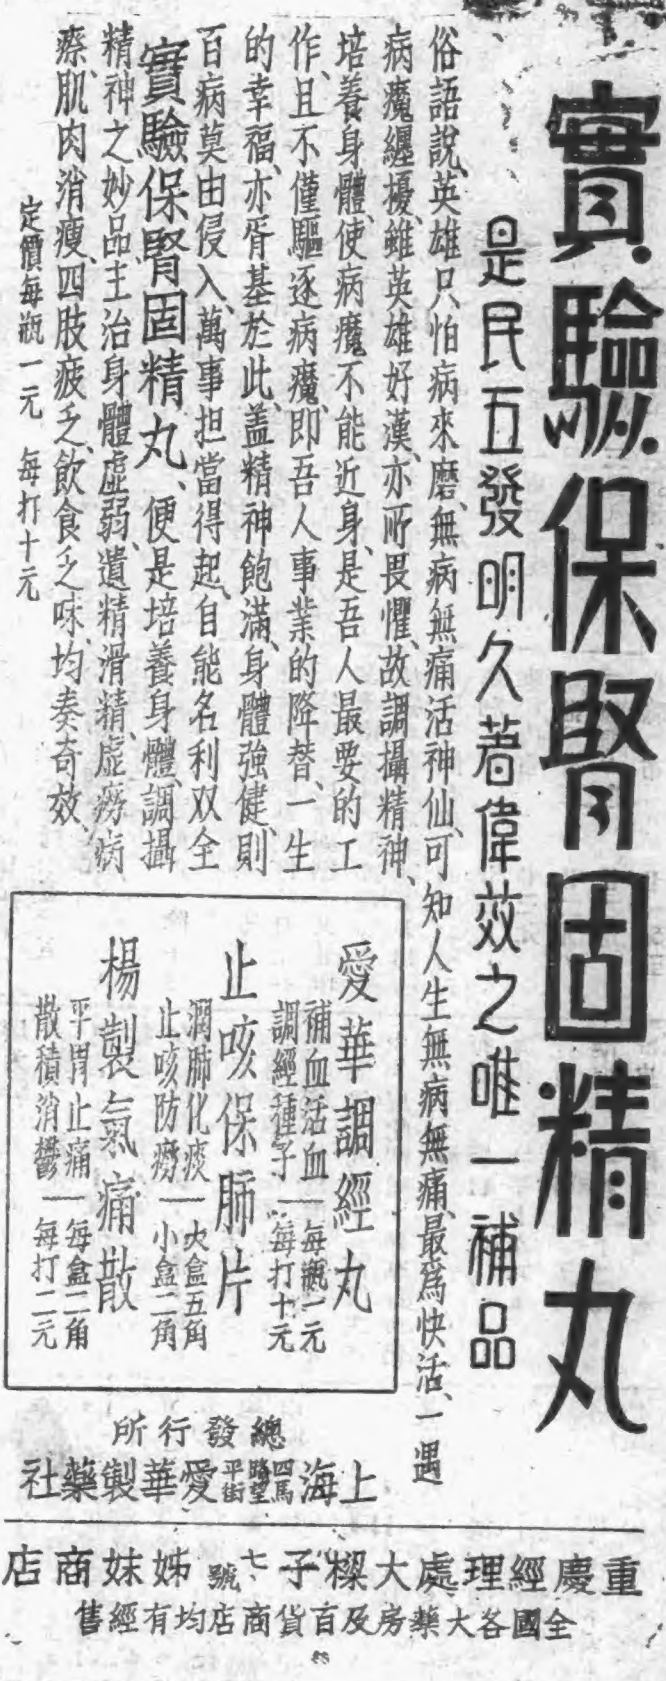 實驗保腎固精丸
是民五發明久著偉效之唯一補品
俗語說、英雄只怕病來磨、無病無痛活神仙、可知人生無病無痛、最爲快活、一遇
病魔纏擾、雖英雄好漢、亦所畏懼、故調攝精神、
培養身體、使病魔不能近身、是吾人最要的工
作、且不僅驅逐病魔、卽吾人事業的降替、一生
的幸福、亦胥基於此、蓋精神飽滿、身體強健、則
百病莫由侵入、萬事担當得起、自能名利双全
實驗保腎固精丸、便是培養身體、調攝
精神之妙品、主治身體虛弱、遺精滑精、虛癆病
瘵、肌肉消瘦、四肢疲乏、飲食乏味、均奏奇效、
定價每瓶一元 每打十元
愛華調經丸
補血活血—每瓶一元
調經種子—每打十元
止咳保肺片
潤肺化痰—大盒五角
止咳防癆—小盒二角
楊製氣痛散
平胃止痛—每盒二角
散積消鬱—每打二元
總發行所
上海四馬路望平街愛華製藥社
重慶經理處大樑子七號姊妹商店
全國各大藥房及百貨商店均有經售